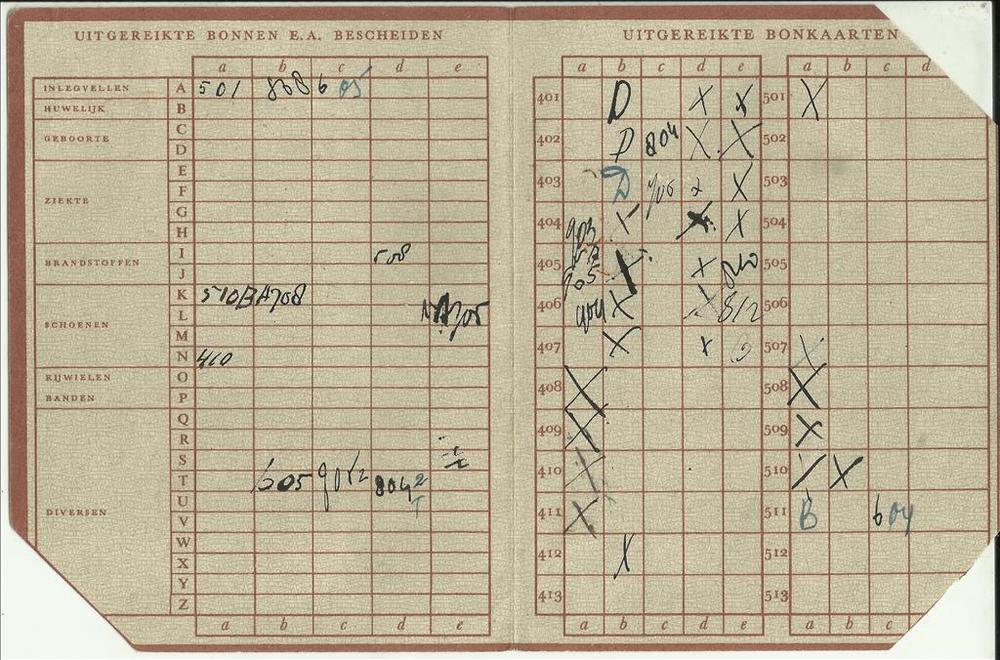 UITGEREIKTE BONNEN E.A. BESCHEIDEN
a b c d e
INLEGVELLEN A 501 808 6 05
HUWELIJK B
GEBOORTE C
D
E
ZIEKTE F
G
H
BRANDSTOFFEN I 508
J
K 510BA708
SCHOENEN L
M
N 410
RIJWIELEN O
BANDEN P
Q
R
S
T 605
U
DIVERSEN V
W
X
Y
Z
a b c d e
UITGEREIKTE BONKAARTEN
a b c d e a b c d
401 D X X 501 X
402 D 804 X X 502
403 D X 503
404 X X X 504
405 905 X X 505
406 904 X X 812 506
407 X X 507 X
408 X 508 X
409 X 509 X
410 X 510 X
411 X 511 B 604
412 X 512
413 513
a b c d e a b c